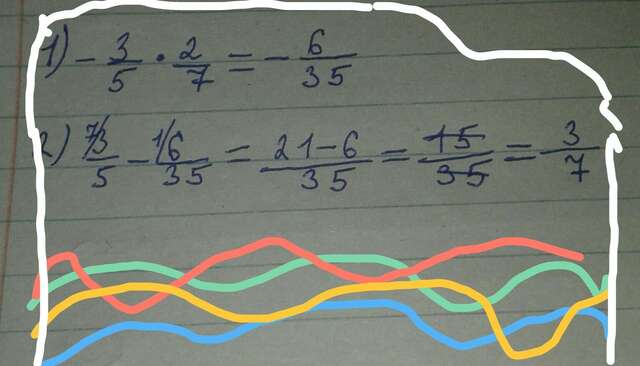 1) - 3/5 · 2/7 = - 6/35
2) 7/3/5 - 1/6/35 = 21-6/35 = 15/35 = 3/7